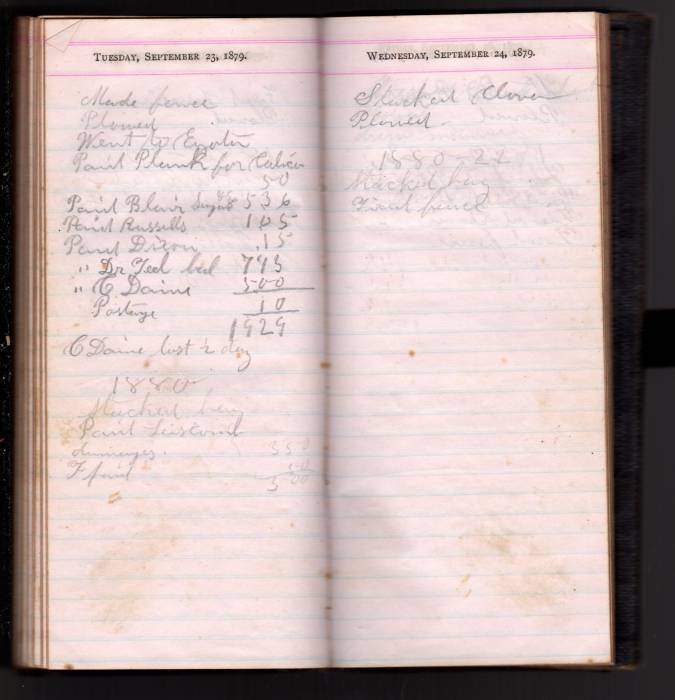 TUESDAY, SEPTEMBER 23, 1879.
Made fence
Plowed
Went to
Paid Plank for Calico
50
Paid Blair Sugar 536
Paid Russells 105
Paid Dixon .15
" Dr Teed bal 793
" C Daine 500
Postage 10
1929
C Daine lost ½ day
1880
Stacked hay
Paid Liscomb
damages. 350
F paid 50
500
WEDNESDAY, SEPTEMBER 24, 1879.
Stacked Clover
Plowed.
1880-22
Stacked hay
Fixed fence